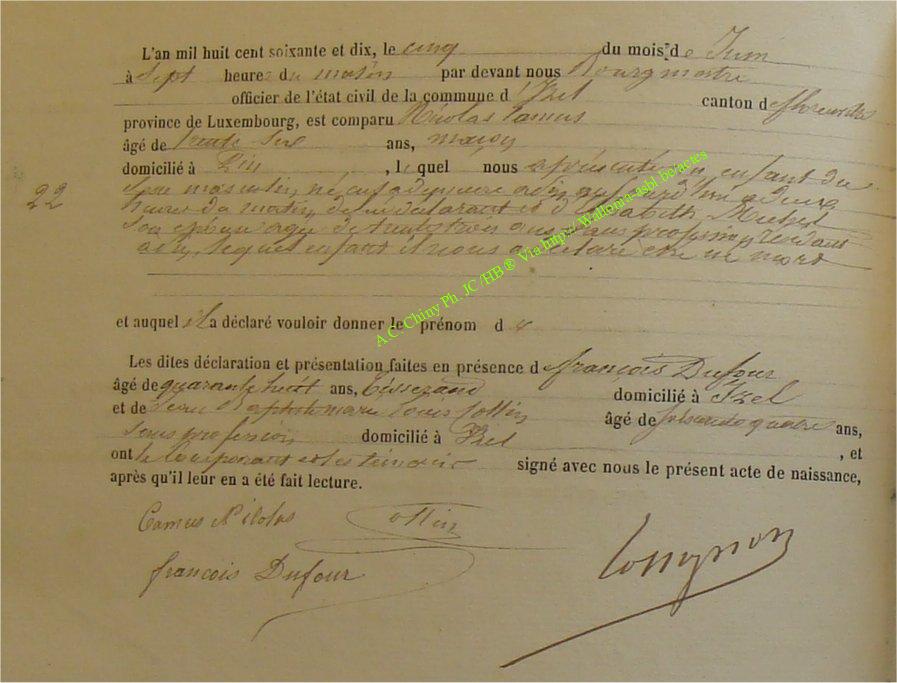 L'an mil huit cent soixante et dix, le cinq du mois de Juin
à sept heures du matin par devant nous Bourgmestre
officier de l'état civil de la commune d'Izel canton de florenville
province de Luxembourg, est comparu Nicolas Camus
âgé de trente six ans, maçon
domicilié à , lequel nous a présenté un enfant du
22
sexe masculin, né cejourd'hui à deux
heures du matin de lui déclarant et d'Elisabeth
son épouse âgée de trente trois ans sans profession, résidant
lequel enfant il nous a déclaré être né mort
et auquel il a déclaré vouloir donner le prénom d
Les dites déclaration et présentation faites en présence de françois Dufour
âgé de quarante huit ans, tisserand domicilié à Izel
et de Jean Baptiste marie louis Cottin âgé de soixante quatre ans,
sans profession domicilié à Izel , et
ont le Comparant et les témoins signé avec nous le présent acte de naissance,
après qu'il leur en a été fait lecture.
Camus Nicolas Cottin
françois Dufour
A.C. Chiny Ph. JC/HB® Via http://Wallonia-asbl.be/actes